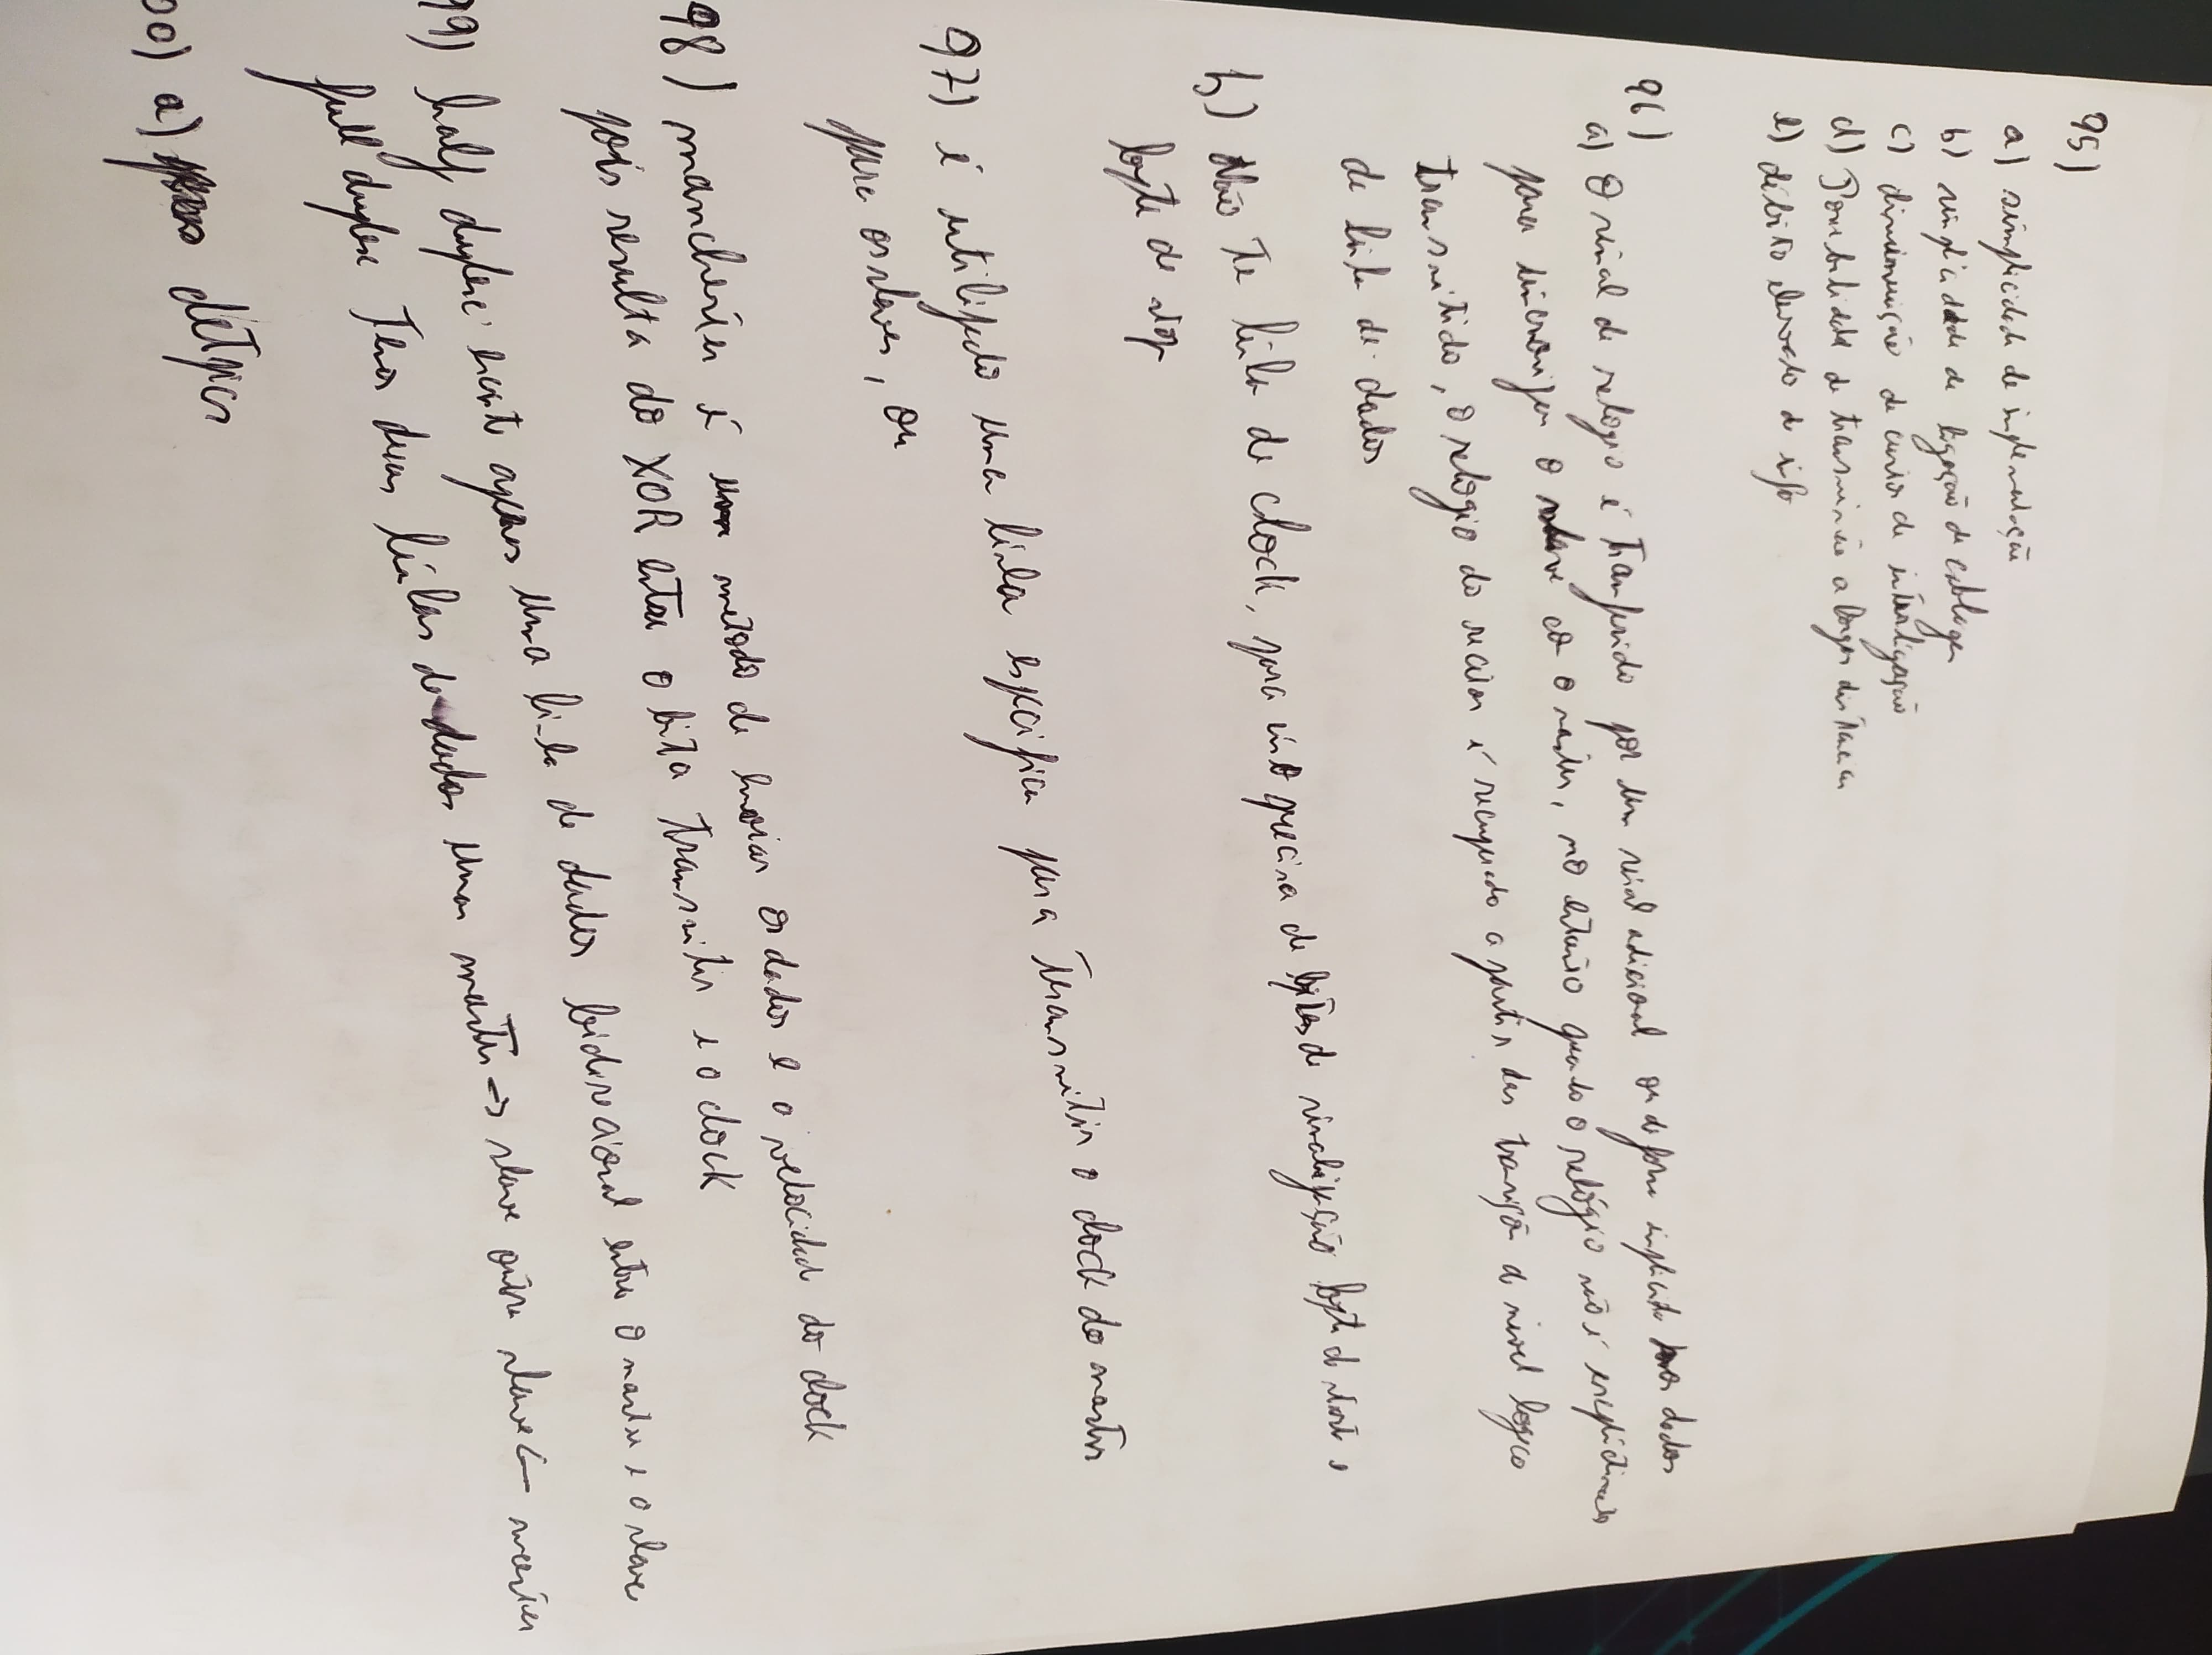 95)
a) simplicidade de implementação
b) simplicidade de ligação de cablagem
c) diminuição de custos de interligação
d) Possibilidade de transmissão a longas distancias
e) débito elevado de info
96)
a) O sinal de relogio é transferido por um sinal adicional ou de forma implicita nos dados
para sincronizar o slave com o master, no entanto quando o relógio não é explicitamente
transmitido, o relogio do recetor é recuperado a partir das transição de nivel logico
de linha de dados
b) Não tem linha de clock, para isso precisa de bytes de sinalização byte de start e
byte de stop
97) é utilizado uma linha especifica para transmitir o clock do master
para os slaves, ou
98) manchester é um método de enviar os dados e a velocidade do clock
pois resulta do XOR entre o bit a transmitir e o clock
99) half duplex existe apenas uma linha de dados bidirecional entre o master e o slave
full duplex temos duas linhas de dados uma master -> slave outra slave <- master
00) a)